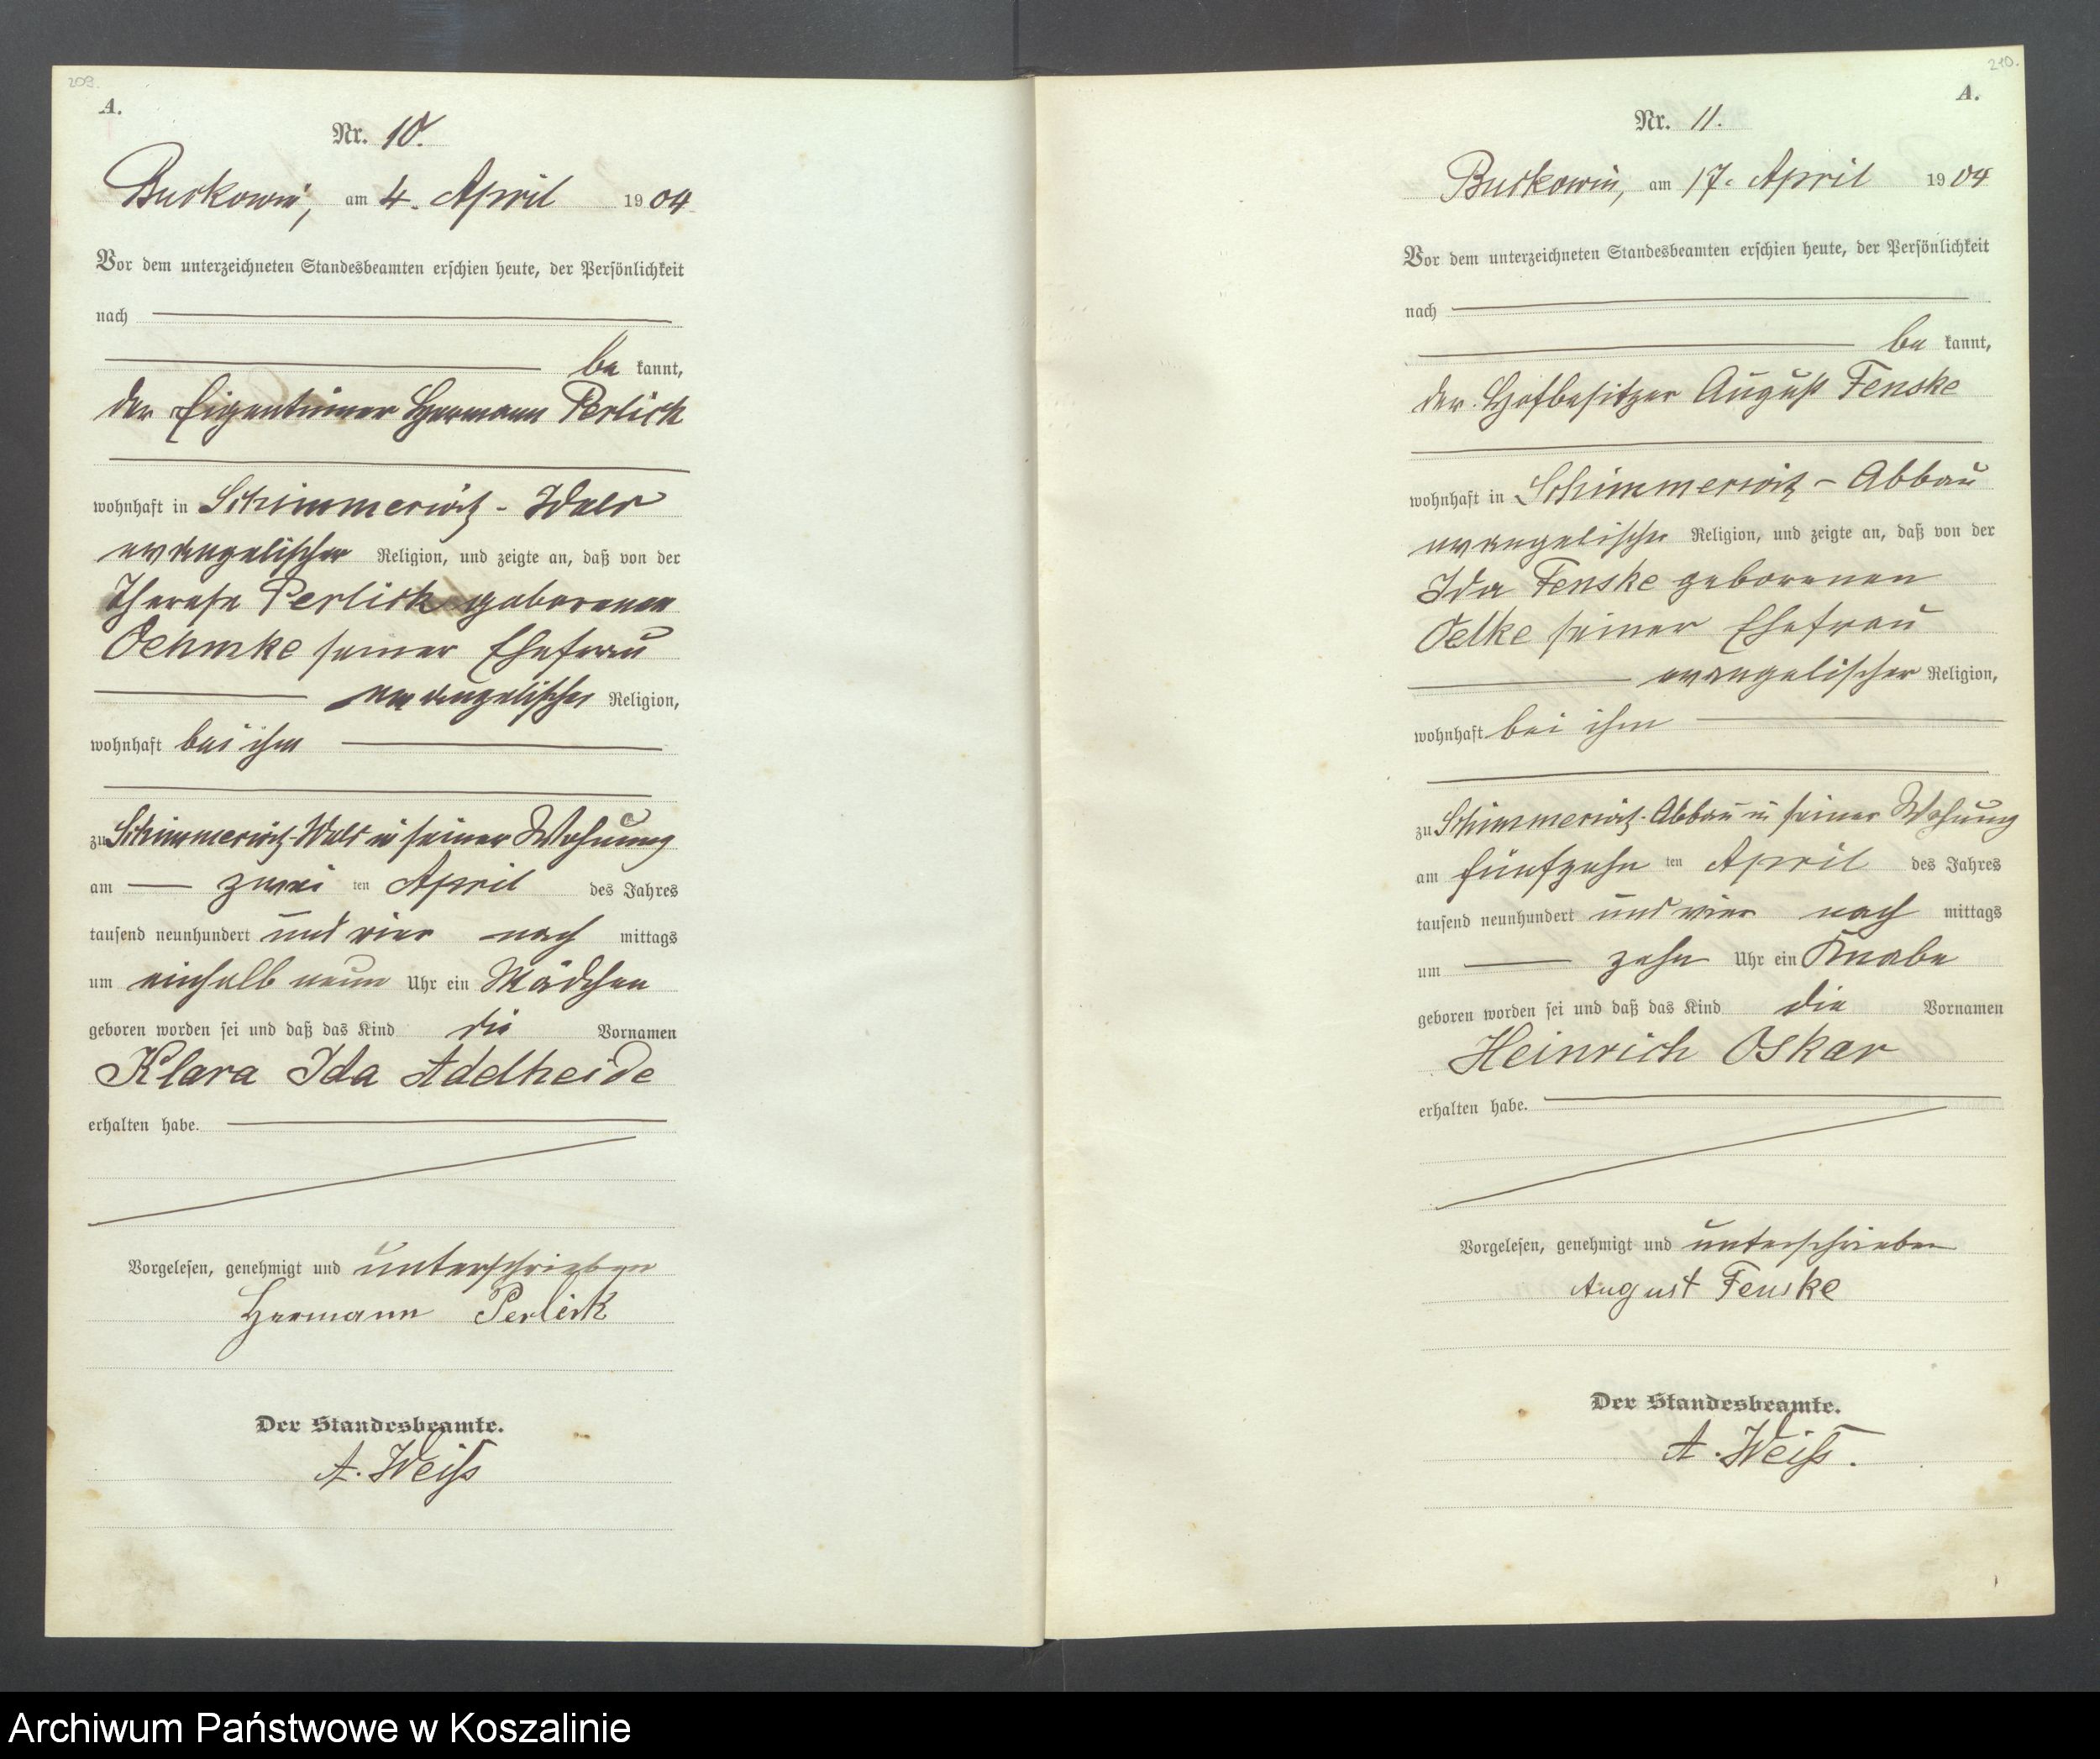 209.
A.
Nr. 10.
Buckowin, am 4. April 1904
Vor dem unterzeichneten Standesbeamten erschien heute, der Persönlichkeit
nach
be kannt,
der Eigentümer Hermann Perlick
wohnhaft in Schimmerwitz - Wald
evangelischer Religion, und zeigte an, daß von der
Therese Perlick geborenen
Oehmke seiner Ehefrau
evangelischer Religion,
wohnhaft bei ihm
zu Schimmerwitz-Wald in seiner Wohnung
am zwei ten April des Jahres
tausend neunhundert und vier nach mittags
um einhalb neun Uhr ein Mädchen
geboren worden sei und daß das Kind die Vornamen
Klara Ida Adelheide
erhalten habe.
Vorgelesen, genehmigt und unterschrieben
Hermann Perlick
Der Standesbeamte.
A. Weiß
210.
A.
Nr. 11.
Buckowin, am 17. April 1904
Vor dem unterzeichneten Standesbeamten erschien heute, der Persönlichkeit
nach
be kannt,
der Hofbesitzer August Fenske
wohnhaft in Schimmerwitz - Abbau
evangelischer Religion, und zeigte an, daß von der
Ida Fenske geborenen
Oelke seiner Ehefrau
evangelischer Religion,
wohnhaft bei ihm
zu Schimmerwitz-Abbau in seiner Wohnung
am fünfzehn ten April des Jahres
tausend neunhundert und vier nach mittags
um zehn Uhr ein Knabe
geboren worden sei und daß das Kind die Vornamen
Heinrich Oskar
erhalten habe.
Vorgelesen, genehmigt und unterschrieben
August Fenske
Der Standesbeamte.
A. Weiß.
Archiwum Państwowe w Koszalinie